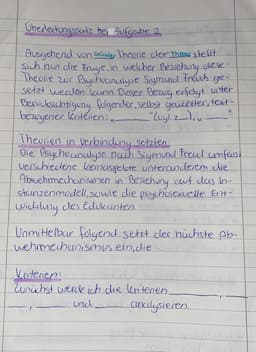 Überleitungssatz bei Aufgabe 2
Ausgehend von Theorie der stellt
sich nun die Frage, in welcher Beziehung diese
Theorie zur Psychoanalyse Sigmund Freuds ge-
setzt werden kann. Dieser Bezug erfolgt unter
Berücksichtigung folgender, selbst gewählter, text-
bezogener Kriterien: „____" (vgl. z__), „____"
Theorien in Verbindung setzten
Die Psychoanalyse nach Sigmund Freud umfasst
verschiedene Kernaspekte unteranderem die
Abwehrmechanismen in Beziehung auf das In-
stanzenmodell, sowie die psychosexuelle Ent-
wicklung des Edukanten.
Unmittelbar folgend setzt der nächste Ab-
wehrmechanismus ein, die
Kriterien:
Zunächst werde ich die Kriterien ____
____, ____ und ____ analysieren.